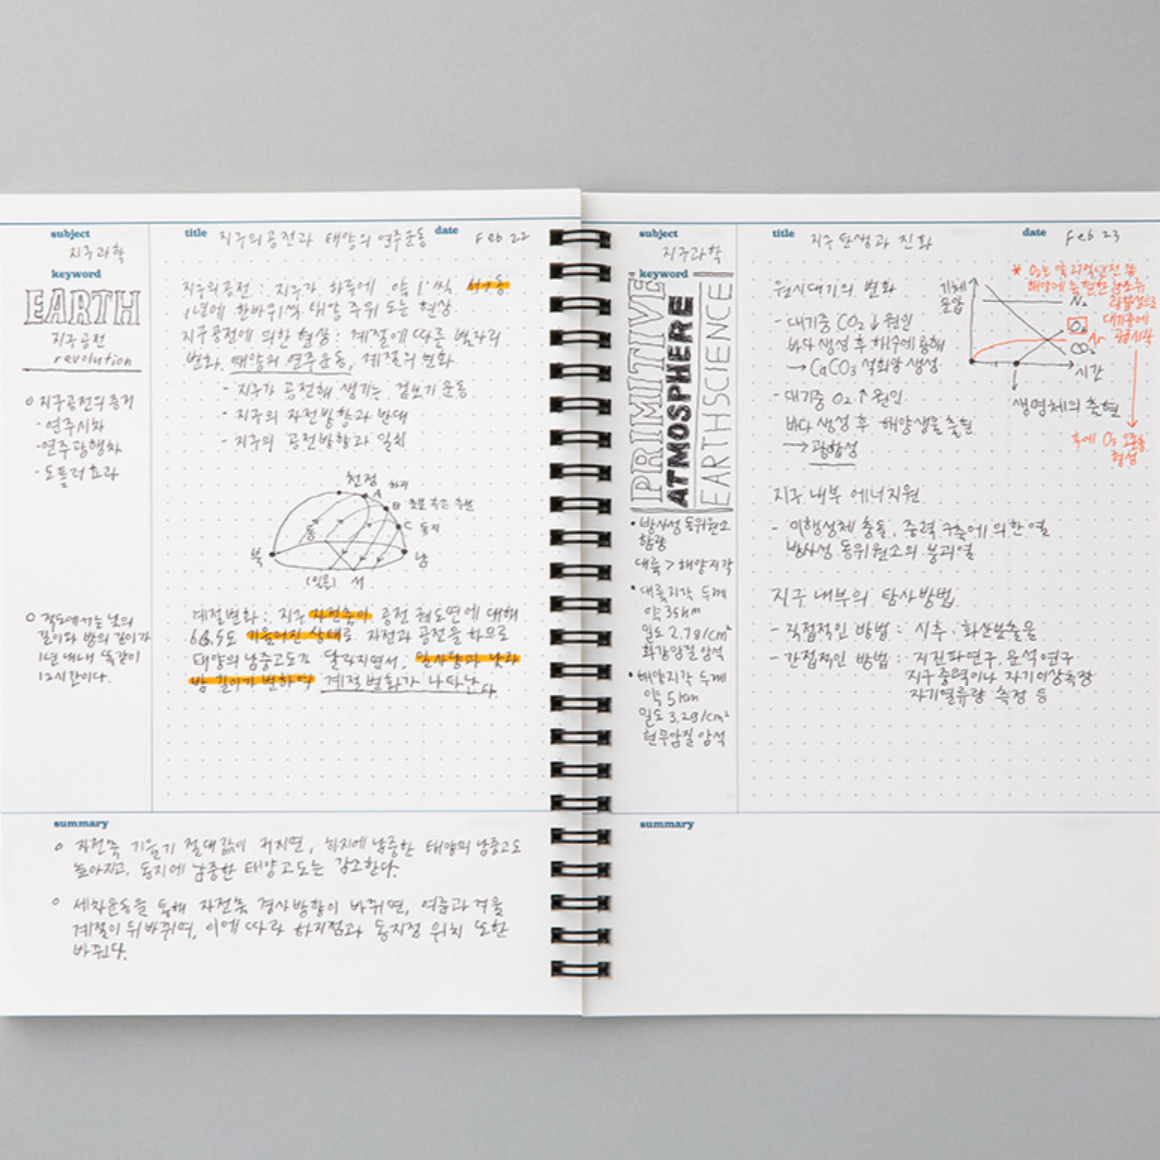 subject
지구과학
title 지구의 공전과 태양의 연주운동
date Feb 22
keyword
EARTH
지구공전
revolution
지구공전의 증거
- 연주시차
- 연주광행차
- 도플러효과
적도에서는 낮의
길이와 밤의 길이가
1년 내내 똑같이
12시간이다.
지구의 공전 : 지구가 하루에 약 1°씩, 서→동
1년에 한바퀴씩 태양 주위 도는 현상
지구공전에 의한 현상 : 계절에 따른 별자리
변화, 태양의 연주운동, 계절의 변화
- 지구가 공전해 생기는 겉보기 운동
- 지구의 자전방향과 반대
- 지구의 공전방향과 일치
천정
A 하지
B 춘분 혹은 추분
C 동지
동
북
남
(일몰) 서
계절변화 : 지구 자전축이 공전 궤도면에 대해
66.5도 기울어진 상태로 자전과 공전을 하므로
태양의 남중고도가 달라지면서, 일사량과 낮과
밤 길이가 변하여 계절 변화가 나타난다.
summary
자전축 기울기 절대값이 커지면, 하지에 남중한 태양의 남중고도
높아지고, 동지에 남중한 태양고도는 감소한다.
세차운동을 통해 자전축 경사방향이 바뀌면, 여름과 겨울
계절이 뒤바뀌며, 이에 따라 하지점과 동지점 위치 또한
바뀐다.
subject
지구과학
title 지구 탄생과 진화
date Feb 23
keyword
PRIMITIVE
ATMOSPHERE
EARTH SCIENCE
• 방사성 동위원소
함량
대륙 > 해양지각
• 대륙지각 두께
약 35km
밀도 2.7g/cm³
화강암질 암석
• 해양지각 두께
약 5km
밀도 3.2g/cm³
현무암질 암석
원시대기의 변화
- 대기중 CO₂ ↓ 원인
바다 생성 후 해수에 용해
→ CaCO₃ 석회암 생성
- 대기중 O₂ ↑ 원인
바다 생성 후 해양생물 출현
→ 광합성
기체
분압
N₂
O₂
Ar
CO₂
시간
생명체의 출현
* O₂는 약
해양에 출현한
대기에
후에 O₃ 오존층
형성
지구 내부 에너지원
- 미행성체 충돌, 중력 수축에 의한 열
방사성 동위원소의 붕괴열
지구 내부의 탐사방법
- 직접적인 방법 : 시추, 화산분출물
- 간접적인 방법 : 지진파연구, 운석연구
지구 중력이나 자기이상측정
지각열류량 측정 등
summary